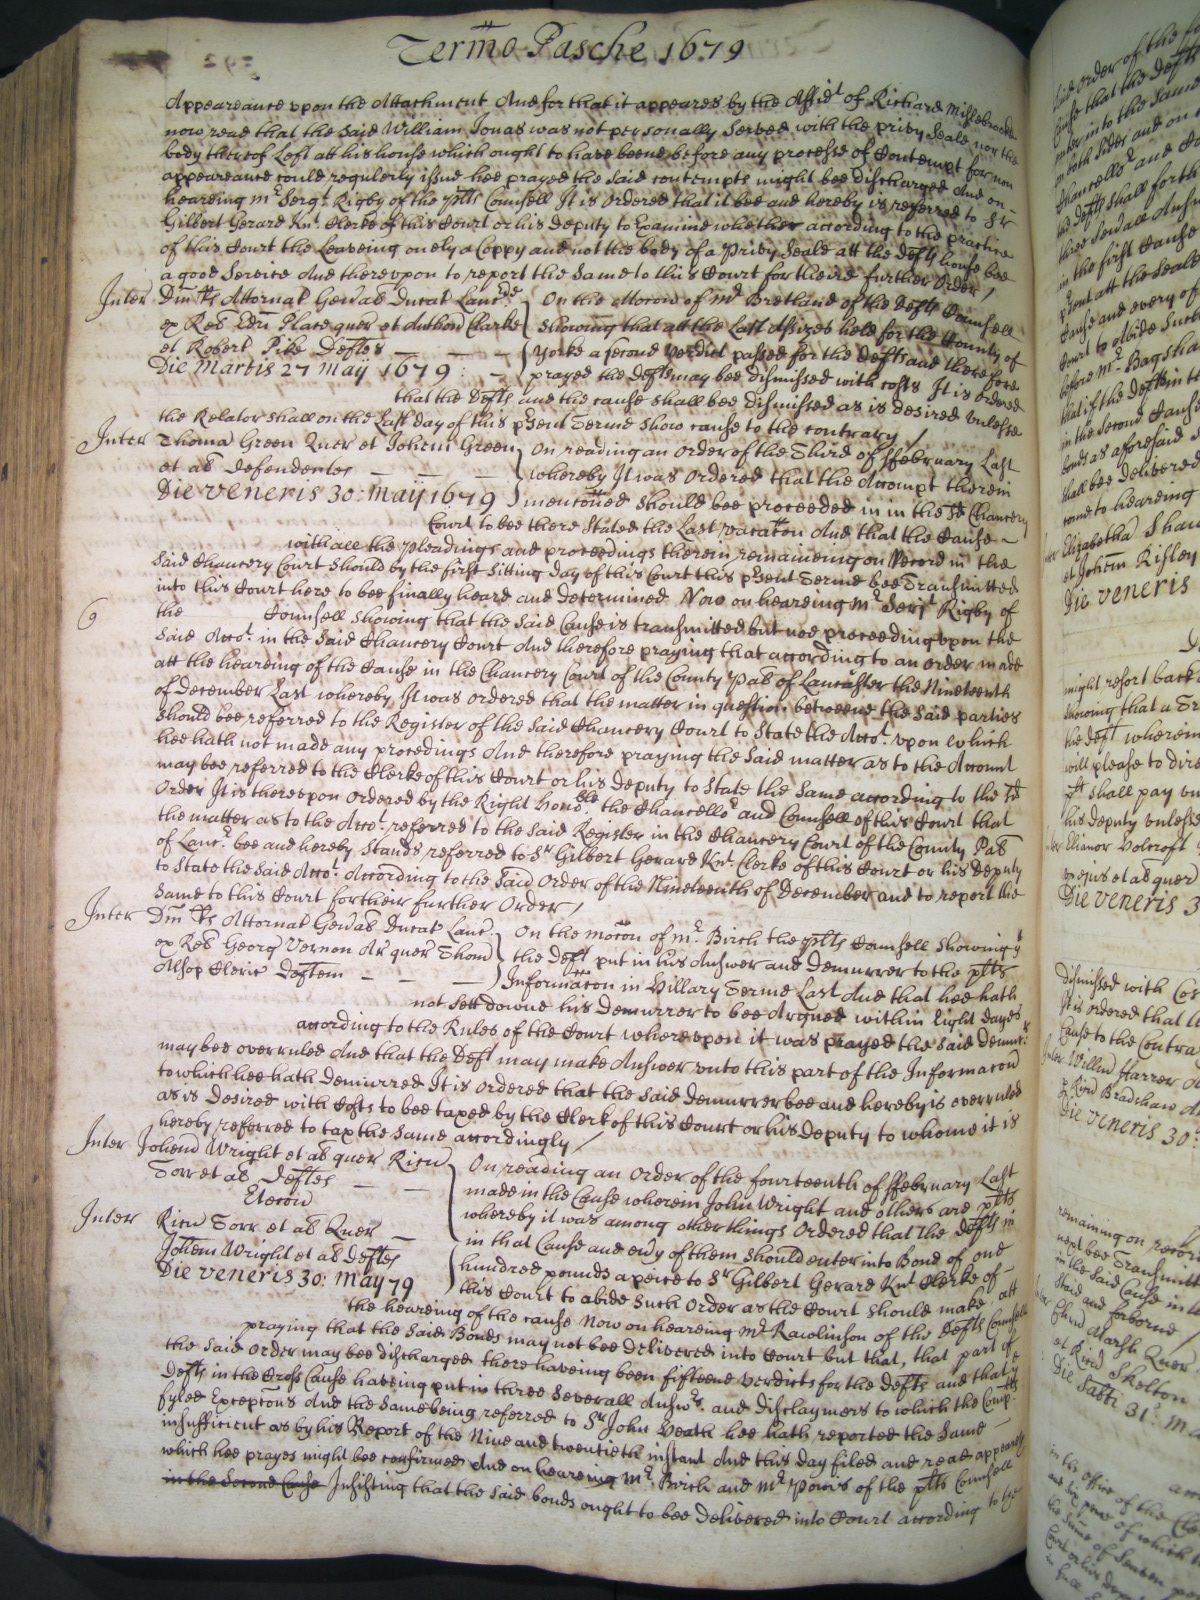 Termo Pasche 1679
Appeareance vpon the Attachment And for that it appeares by the Affidt of Richard
now read that the said William Jonas was not personally served with the privy Seale nor the
body thereof Left att his house which ought to have beene before any processe of Contempt for non
appeareance could regulerly issue hee prayed the said contempts might bee discharged And on
heareing Mr Sergt Rigby of the plts Counsell It is Ordered that it bee and hereby is referred to Sr
Gilbert Gerard Knt. Clerke of this Court or his deputy to Examine whether according to the practice
of this Court the Leaveing onely a Coppy and not the body of a Privy Seale att the Defts house bee
a good Service And thereupon to report the Same to this Court for theire further Order /
Inter Dm Rs Attornat Gen'al Ducat Lanc
ex Rel Edri Place quer et Anthon Clarke
et Robert Pike Deftes
Die Martis 27 May 1679
On the Mocon of Mr Bretland of the Defts Counsell
showing that att the Last Assizes held for the County of
Yorke a second verdict passed for the Defts and therefore
prayed the Defts may bee dismissed with costs It is ordered
that the Defts and the cause shall bee dismissed as is desired vnlesse
the Relator shall on the Last day of this p'sent Terme show cause to the contrary /
Inter Thoma Green Quer et Johem Green
et al Defendentes
Die Veneris 30: May 1679
On reading an order of the Third of ffebruary Last
whereby It was Ordered that the Accompt therein
menconed should bee proceeded in in the sd Chancery
Court to bee there Stated the Last vacacon And that the Cause
with all the pleadings and proceedings therein remaineing on Record in the
said Chancery Court should by the first Sitting day of this Court this p'sent Terme bee Transmitted
into this Court here to bee finally heard and determined Now on heareing Mr Serjt Rigby of
the Counsell showing that the said Cause is transmitted but noe proceeding vpon the
said Accot. in the said Chancery Court And therefore praying that according to an order made
att the heareing of the Cause in the Chancery Court of the County Pal of Lancaster the Nineteenth
of December Last whereby It was ordered that the matter in question betweene the said parties
should bee referred to the Register of the said Chancery Court to State the Accot. vpon which
hee hath not made any procedings And therefore praying the said matter as to the Account
may bee referred to the Clerke of this Court or his Deputy to State the Same according to the sd
Order It is thereupon Ordered by the Right Honoble. the Chancellor and Counsell of this Court that
the matter as to the Accot. referred to the said Register in the Chancery Court of the County Pal
of Lancr. bee and hereby Stands referred to Sr Gilbert Gerard Knt. Clerke of this Court or his Deputy
to State the said Accot. According to the Said Order of the Nineteenth of December and to report the
Same to this Court for their further Order /
Inter Dm Rs Attornat Gen'al Ducat Lanc
ex Rel Georg Vernon Ar quer Thom
Alsop Cleric Deftem
On the mocon of Mr. Birch the plts Counsell showing yt
the Deft put in his Answer and Demurrer to the plts
Informacon in Hillary Terme Last And that hee hath
not sett downe his Demurrer to bee Argued within Eight dayes
according to the Rules of the Court whereupon it was prayed the said Demurr
may bee overruled And that the Deft may make Answer vnto this part of the Informacon
to which hee hath Demurred It is Ordered that the said Demurrer bee and hereby is overruled
as is desired with Costs to bee taxed by the Clerk of this Court or his Deputy to whome it is
hereby referred to tax the Same accordingly /
Inter Johem Wright et al quer Ricu
Torr et al Deftes
Etecon
Inter Ricu Torr et al Quer
Johem Wright et al Deftes
Die Veneris 30: May 79
On reading an Order of the fourteenth of ffebruary Last
made in the Cause wherein John Wright and others are plts
whereby it was among other things Ordered that the Defts in
in that Cause and ev'y of them should enter into Bond of one
hundred pounds apeice to Sr Gilbert Gerard Knt Clerke of
this Court to abide such Order as the Court should make att
the heareing of the cause Now on heareing Mr Rawlinson of the Defts Counsell
praying that the said Bonds may not bee delivered into Court but that, that part of
the said Order may bee discharged there haveing been fifteene verdicts for the Defts and that ye
Defts in the Cross Cause haveing put in three Severall Answrs. and disclaymers to which the Complts
fyled Excepcons And the Same being referred to Sr John Heath hee hath reported the Same
insufficient as by his Report of the Nine and twentieth instant And this day filed and read appeares
which hee prayes might bee confirmed And on heareing Mr. Birch and Mr Powis of the plts Counsell
in the Second Cause Insisting that the said bonds ought to bee Delivered into Court according to the
said Order of the
Cause that the Defts
enter into the same
on both sides and on
Chancellor and
the Defts shall forth
in the first Cause
Cause and every of
Court to Abide such
before Mr. Bagsha
that if the Deftes in
in the Second Cause
bonds as aforesaid
shall bee delivered
come to heareing
Elizabetha Shaw
et Johem Risley
Die Veneris
might resort back
showing that a
the Deft wherein
will please to dire
shall pay
his deputy vnlesse
Elianor Holcroft
Die Veneris 3
dismissed with Cos
It is ordered that
cause to the Contra
Willm ffarrer
Ricu Bradshaw
Die Veneris 30
remaining on record
next bee Transmitt
in the said Cause
Staid and forborne /
Edmd Marsh Quer
et Ricu Skelton
Die Sabti 31: Ma
in the office of the Cle